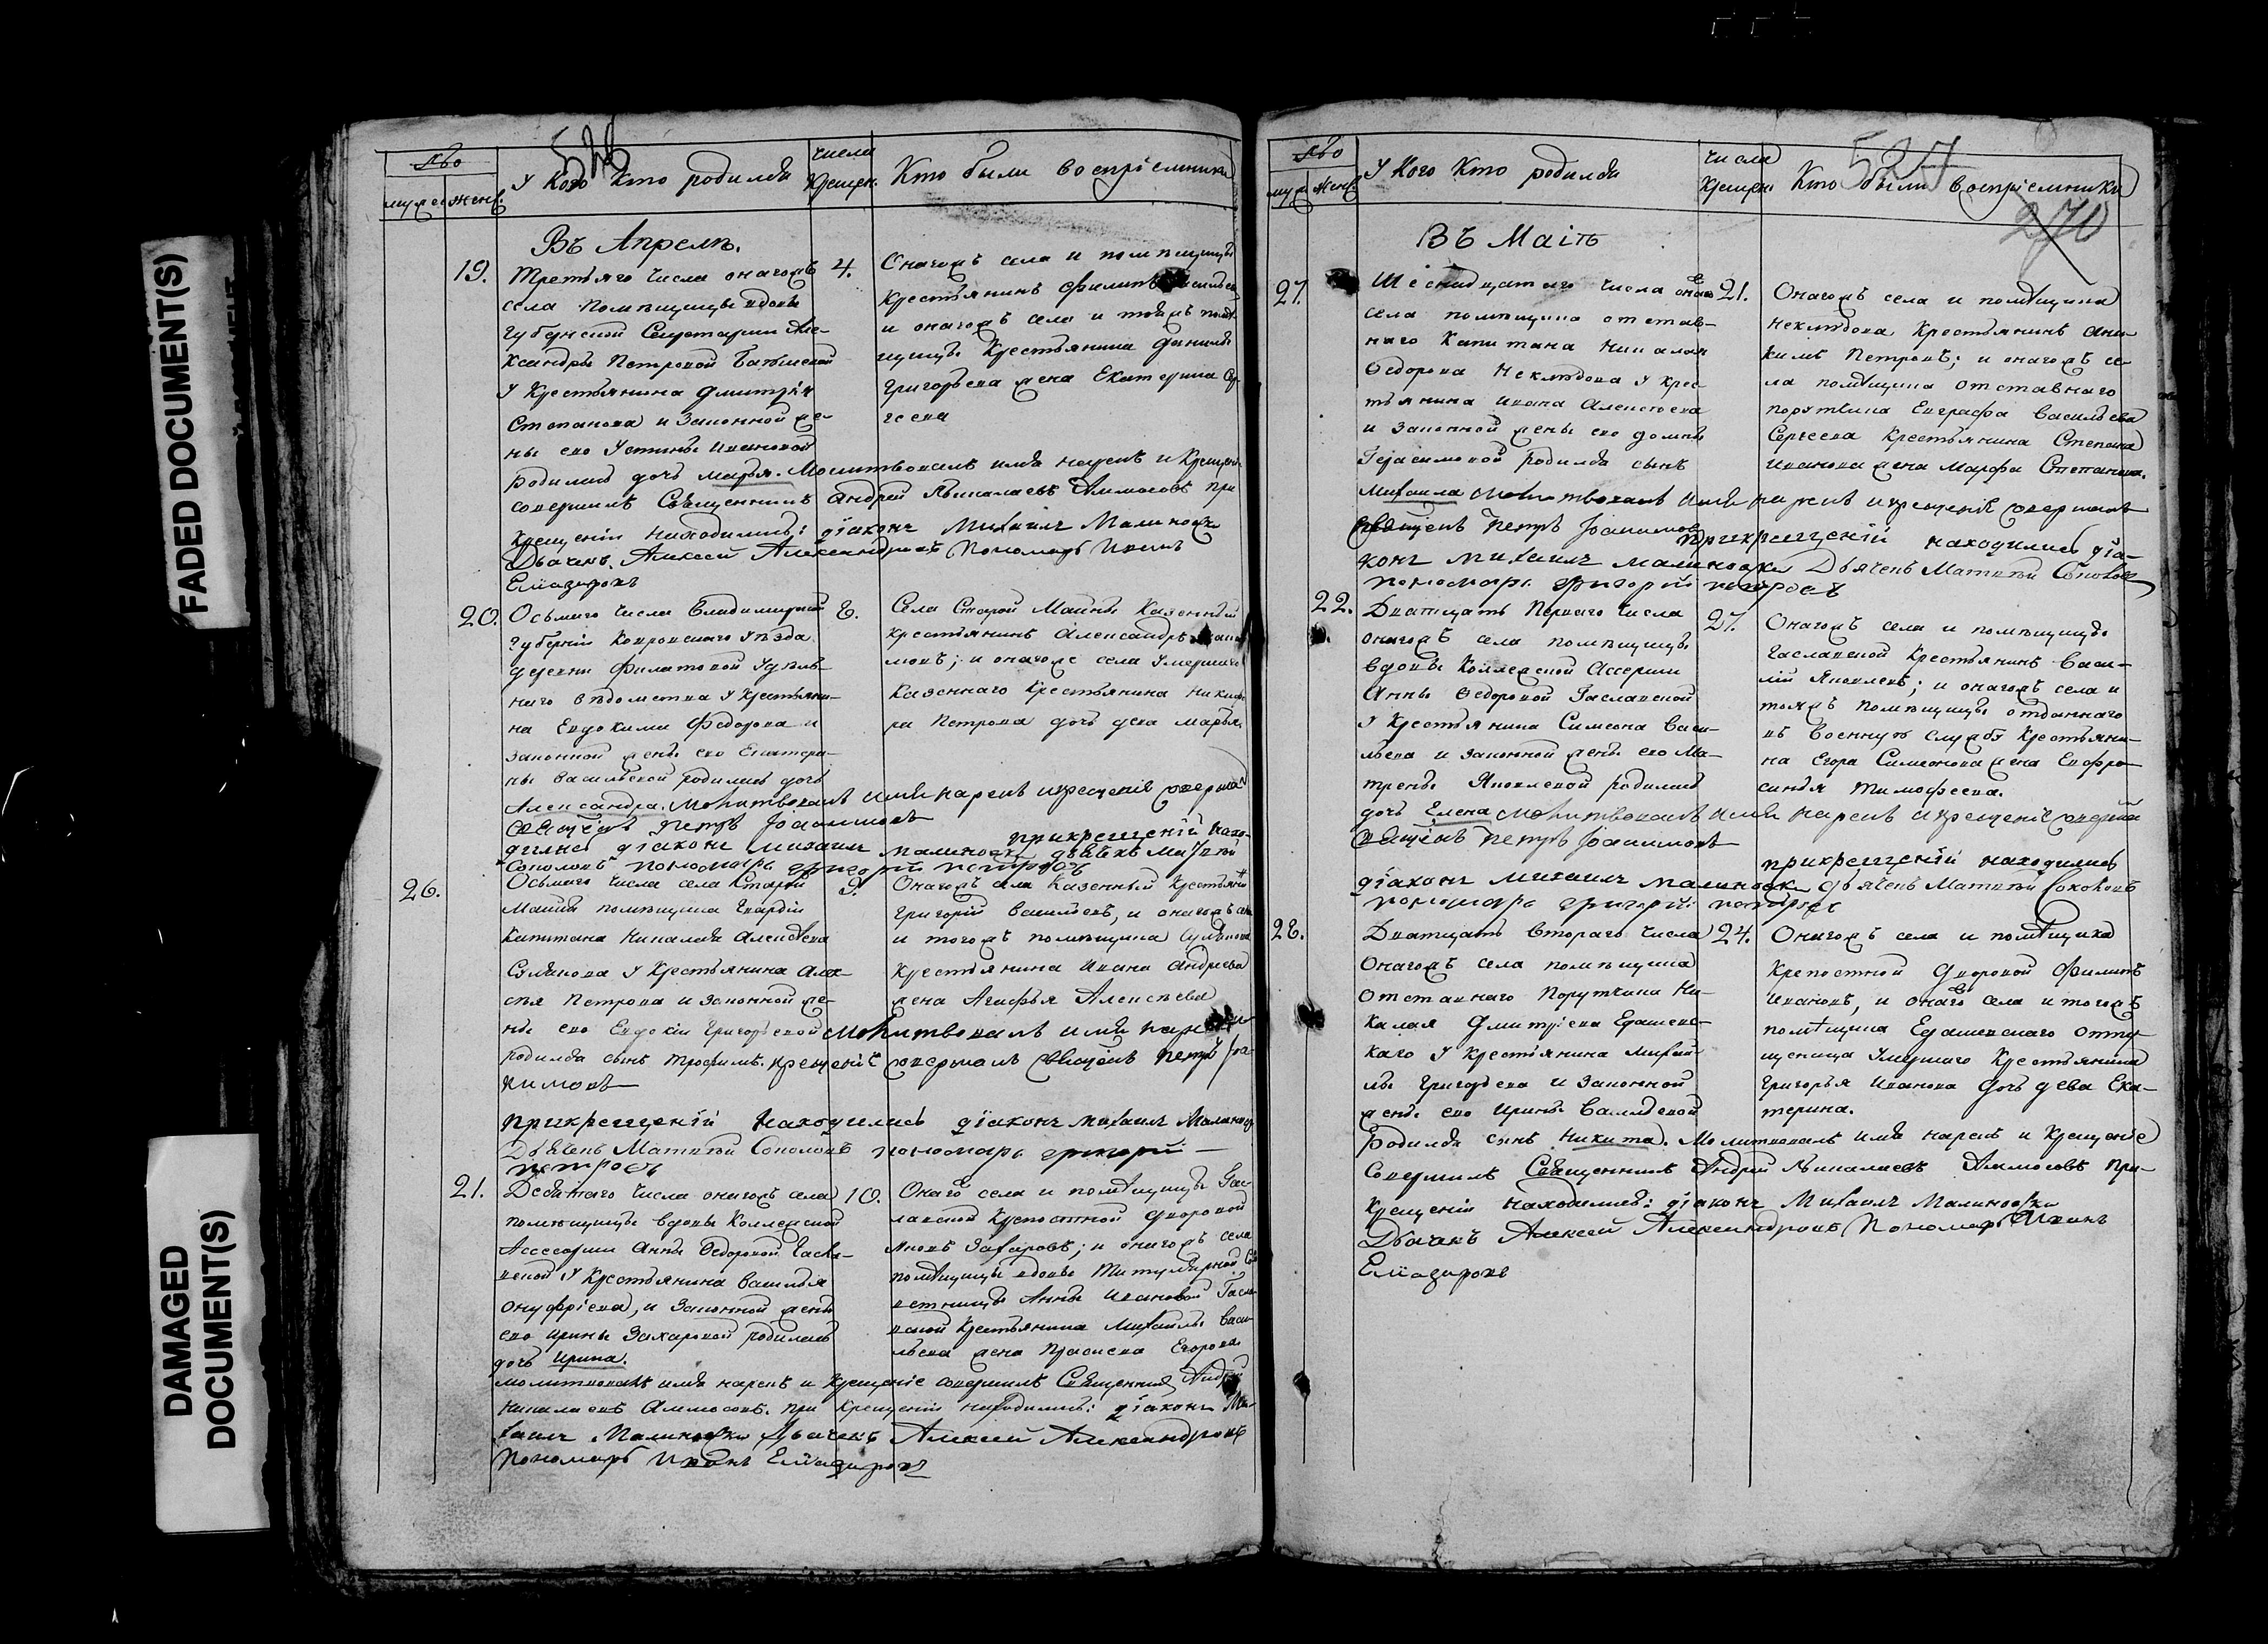 FADED DOCUMENT(S)
DAMAGED
DOCUMENT(S)
526
муж. женс.
У Кого Кто родился
числа
крещен.
Кто были воспріемники
Въ Апрелѣ.
19.
Третьяго числа онагожъ
села помѣщицы вдовы
Губернской Секретарши Але-
ксандры Петровой
У Крестьянина Дмитрія
Степанова и Законной же-
ны его Устиньи Ивановой
родилась дочь Марья. Молитвовалъ имя нарекъ и Крещен.
совершилъ Священникъ Андрей Никалаевъ Аммосовъ при
крещеніи находились: діаконъ Михаилъ Малиновски
Дьячекъ Алексей Александровъ Пономарь Иванъ
Елиазаровъ
4.
Онагожъ села и помѣщицы
Крестьянинъ Филипъ
и онагожъ села и тояжъ помѣ-
щицы Крестьянина Данилы
Григорьева жена Екатерина Сер-
геева
20.
Осьмаго числа Владимирской
Губерніи Ковровскаго уѣзда
деревни Филатовой Удѣль-
наго вѣдомства У Крестьяни-
на Евдокима Федорова и
законной жены его Екатери-
ны Васильевой родилась дочь
Александра. Молитвовалъ имя нарекъ и крещеніе совершалъ
Священ. Петръ Іоакимовъ
при крещеніи нахо-
дились діаконъ Михаилъ Малиновски дьячекъ Матвей
Соколовъ пономарь Григорій Петровъ
8.
Села Старой Майны Казенный
крестьянинъ Александръ
и онагоже села умершаго
Казеннаго Крестьянина Никифо-
ра Петрова дочь дева Марья.
26.
Осьмаго числа села Старой
Майны помѣщика Гвардіи
Капитана Никалая Алексѣева
У Крестьянина Алек-
сѣя Петрова и законной же-
ны его Евдокіи Григорьевой Молитвовалъ имя нарекъ и
родился сынъ Трофимъ. крещеніе совершалъ священ. Петръ Іоа-
кимовъ
при крещеніи находились діаконъ Михаилъ Малиновск
Дьячекъ Матвей Соколовъ пономарь Григорій
Петровъ
9.
Онагожъ села Казенный Крестьянин
Григорій Васильевъ, и онагожъ села
и тогожъ помѣщика
Крестьянина Ивана Андреева
жена Агафья Алексѣева
21.
Девятаго числа онагожъ села
помѣщицы вдовы Коллежской
Асессорши Анны Федоровой Гасла-
вской У Крестьянина Василья
Онуфріева, и Законной жены
его Ирины Захаровой родилась
дочь Ирина.
молитвовалъ имя нарекъ и Крещеніе совершилъ Священник Андрей
Никалаевъ Аммосовъ. при крещеніи находились: діаконъ Ми-
хаилъ Малиновски Дьячекъ Алексей Александровъ
Пономарь Иванъ Елиазаровъ
10.
Онаго села и помѣщицы Гас-
лавской Крепостной дворовой
Яковъ Захаровъ; и онагожъ села
помѣщицы вдовы Титулярной Со-
ветницы Анны Ивановой Гасла-
вской Крестьянина Михаилы Васи-
льева жена Прасковья Егорова
527
270
муж. женс.
У Кого Кто родился
числа
крещен.
Кто были воспріемники
Въ Маіѣ
27.
Шеснадцатаго числа онаго
села помѣщика отстав-
наго Капитана Никалая
Федорова Неклюдова у крес-
тьянина Ивана Алексѣева
и законной жены его Домны
Герасимовой родился сынъ
Михаила Молитвовалъ имя нарекъ и крещеніе совершалъ
Священ. Петръ Іоакимовъ
при крещеніи находились діа-
конъ Михаилъ Малиновски Дьячекъ Матвей Соколовъ
пономарь Григорій Петровъ
21.
Онагожъ села и помѣщика
Неклюдова Крестьянинъ
Петровъ; и онагожъ се-
ла помѣщика отставнаго
порутчика Евграфа Васильева
Сергеева Крестьянина Степана
Иванова жена Марфа Степанова.
22.
Дватцать Перваго числа
онагожъ села помѣщицы
вдовы Коллежской Ассесрши
Анны Федоровой Гаславской
у Крестьянина Симеона Васи-
льева и законной жены его Ма-
трены Яковлевой родилась
дочь Елена Молитвовалъ имя нарекъ и крещеніе совершал
Священ. Петръ Іоакимовъ
при крещеніи находились
діаконъ Михаилъ Малиновски Дьячекъ Матвей Соколовъ
пономарь Григорій Петровъ
27.
Онагожъ села и помѣщицы
Гаславской Крестьянинъ Васи-
лій Яковлевъ; и онагожъ села и
тояжъ помѣщицы отданнаго
въ Военную службу Крестьяни-
на Егора Симеонова жена Евфро-
синья Тимофеева.
28.
Дватцать Втораго числа
Онагожъ села помѣщика
Отставнаго Порутчика Ни-
калая Дмитріева Едашевс-
каго У Крестьянина Михаи-
лы Григорьева и Законной
жены его Ирины
Родился сынъ Никита. Молитвовалъ имя нарекъ и Крещеніе
Совершилъ Священникъ Андрей Никалаевъ Аммосовъ При
Крещеніи находились: діаконъ Михаилъ Малиновски
Дьячекъ Алексей Александровъ Пономарь Иванъ
Елиазаровъ
24.
Онагожъ села и помѣщика
Крепостной Дворовой Филипъ
Ивановъ, и онаго села и тогожъ
помѣщика Едашевскаго отпу-
щеница умершаго Крестьянина
Григорья Иванова дочь дева Ека-
терина.